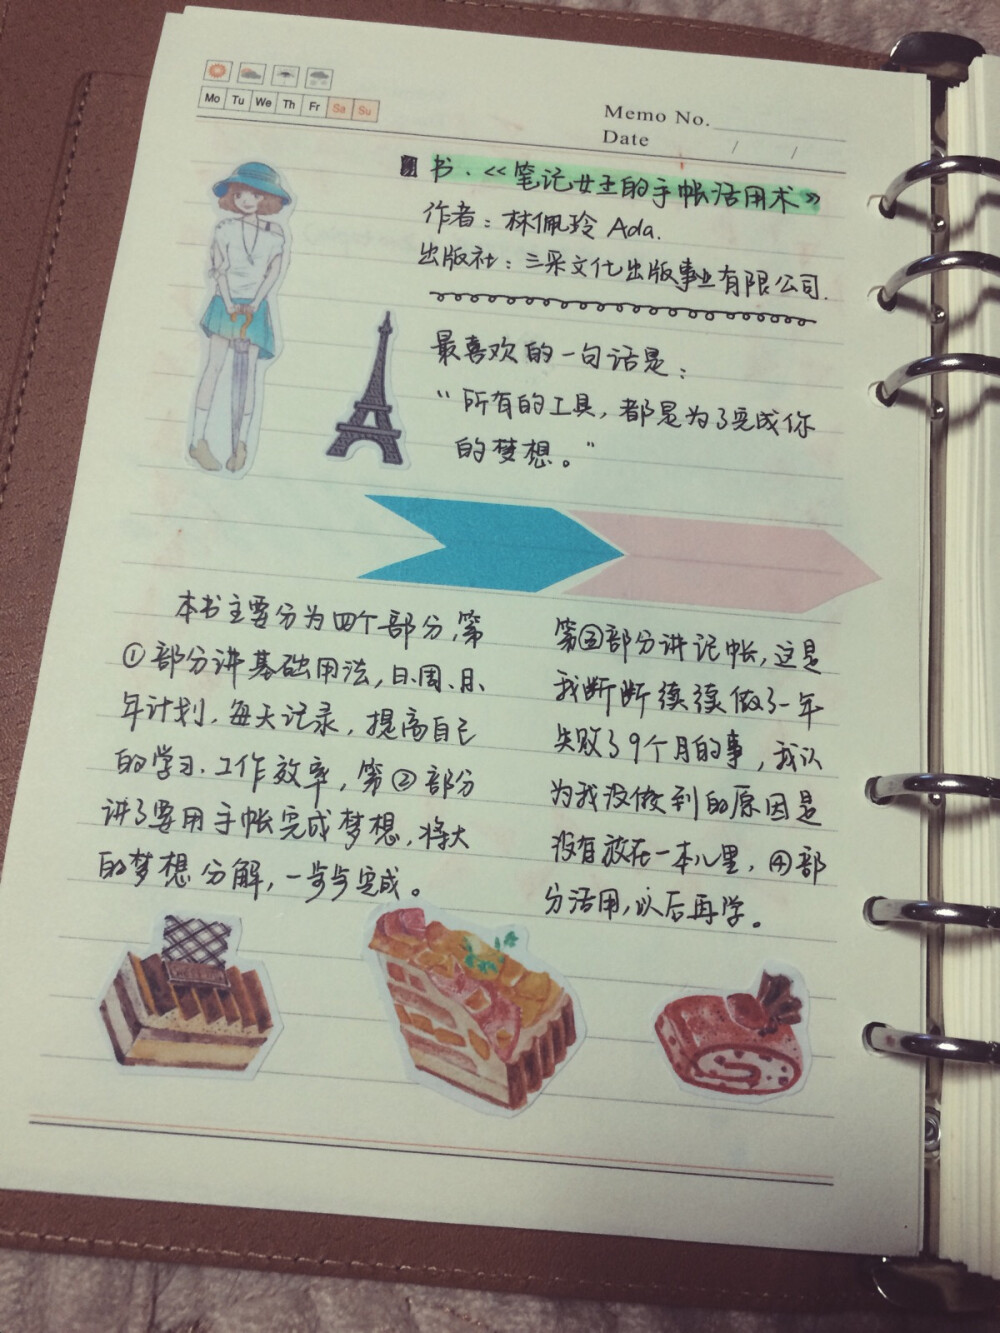 Mo Tu We Th Fr Sa Su
Memo No.
Date / /
书.《笔记女王的手帐活用术》
作者：林佩玲 Ada.
出版社：三采文化出版事业有限公司.
最喜欢的一句话是：
“所有的工具，都是为了完成你
的梦想。”
本书主要分为四个部分，第
①部分讲基础用法，日、周、月、
年计划，每天记录，提高自己
的学习、工作效率，第②部分
讲了要用手帐完成梦想，将大
的梦想分解，一步步完成。
第③部分讲记帐，这是
我断断续续做了一年
失败了9个月的事，我认
为我没做到的原因是
没有放在一本儿里，④部
分活用，以后再学。